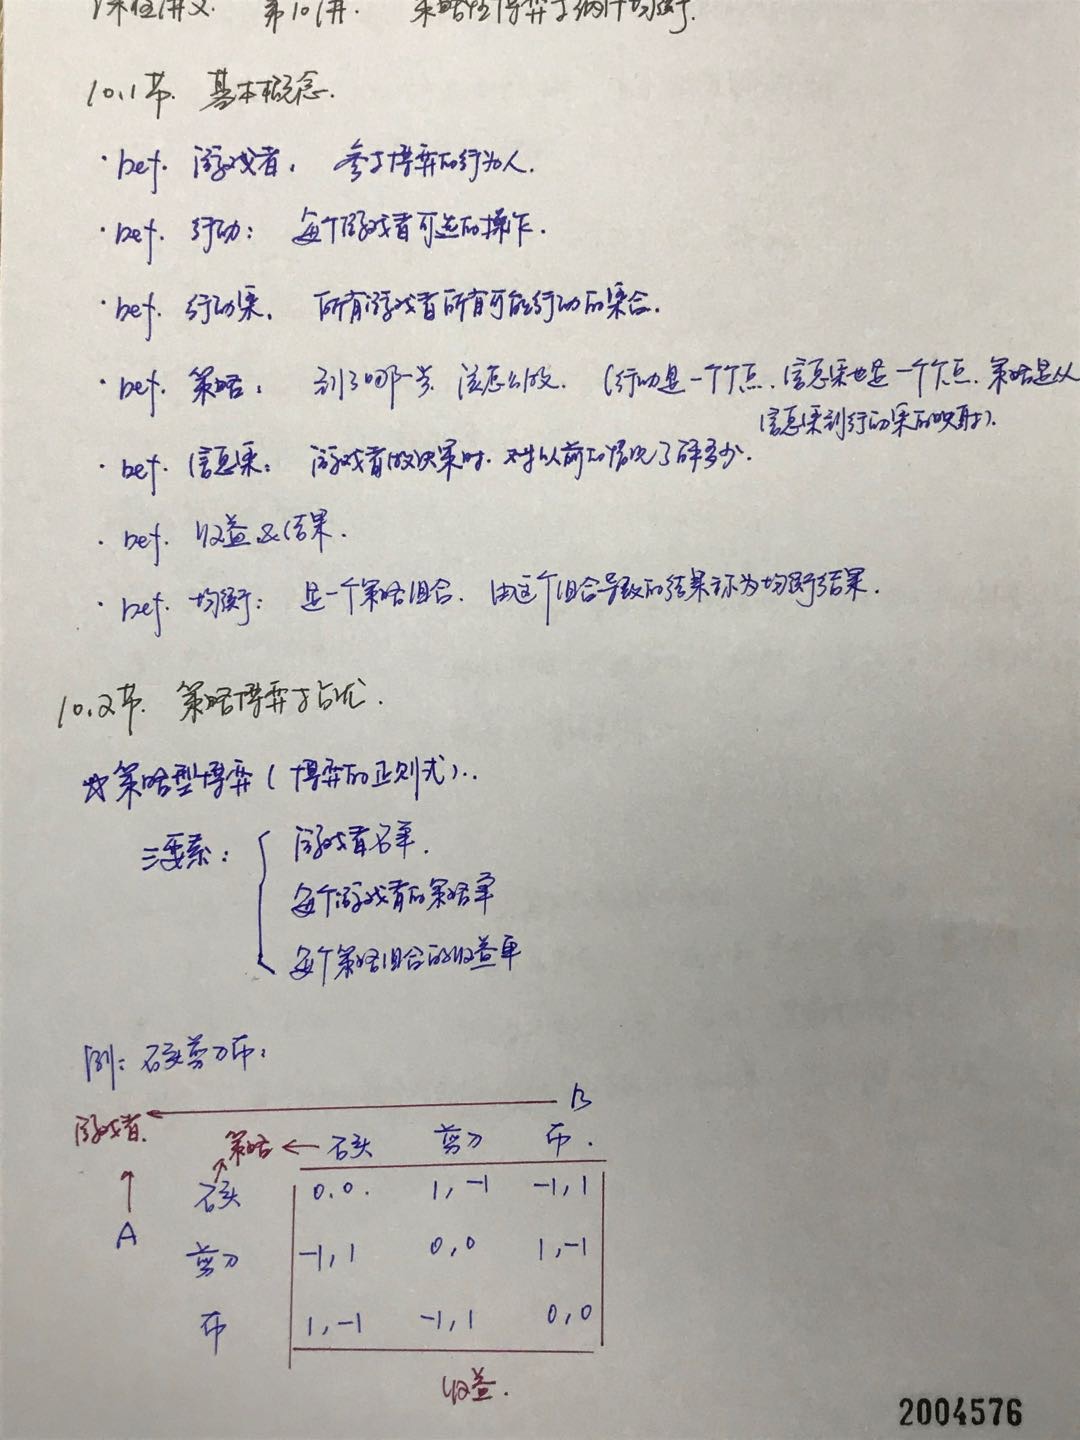 课程讲义 第10讲. 策略性博弈与纳什均衡.
10.1节. 基本概念.
· Def. 游戏者. 参与博弈的行为人.
· Def. 行动: 每个游戏者可选的操作.
· Def. 行动集. 所有游戏者所有可能行动的集合.
· Def. 策略: 到了哪一步. 该怎么做. (行动是一个点. 信息集也是一个点. 策略是从
信息集到行动集的映射).
· Def. 信息集: 游戏者做决策时. 对以前的情况了解多少.
· Def. 收益&结果.
· Def. 均衡: 是一个策略组合. 由这个组合导致的结果称为均衡结果.
10.2节. 策略博弈与占优.
☆策略型博弈(博弈的正则式)..
三要素: { 游戏者名单.
每个游戏者的策略单
每个策略组合的收益单
例: 石头剪刀布:
B
游戏者. 策略 ← 石头 剪刀 布.
石头 0,0. 1,-1 -1,1
A
剪刀 -1,1 0,0 1,-1
布 1,-1 -1,1 0,0
收益.
2004576